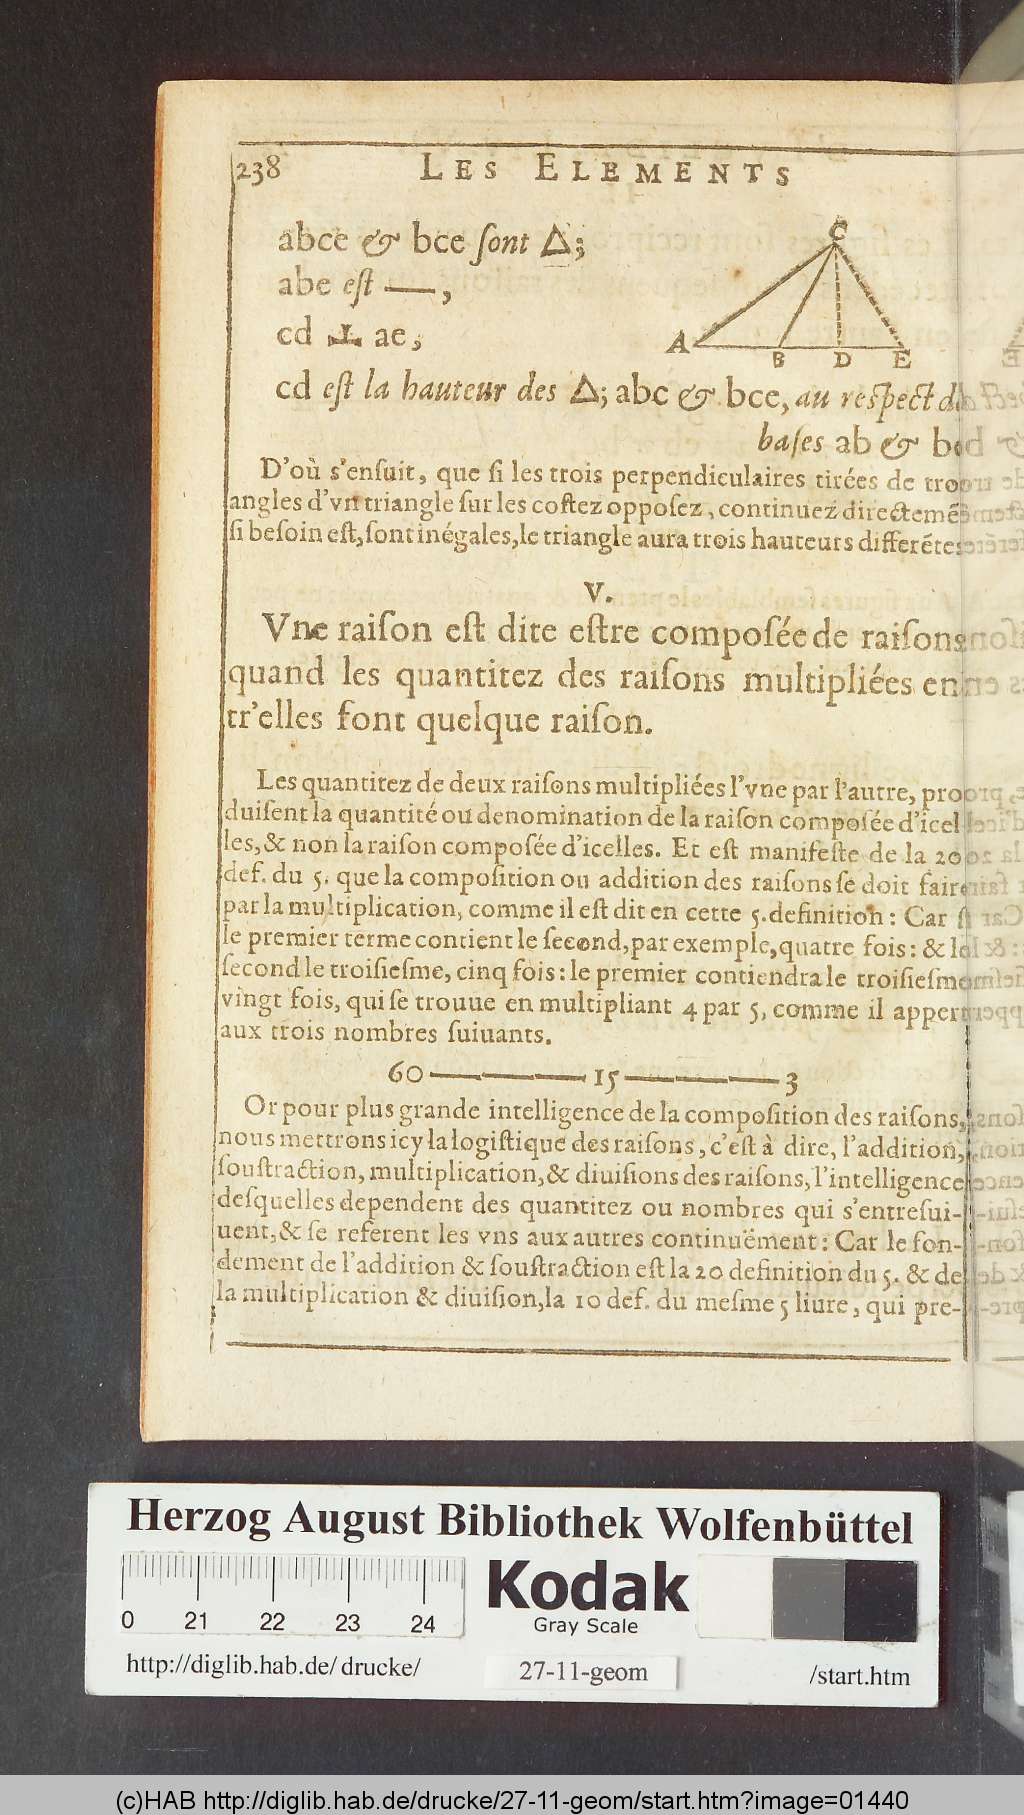 238 LES ELEMENTS
abce & bce ſont Δ;
abe eſt —,
cd ⊥ ae;
C
A B D E
cd eſt la hauteur des Δ; abc & bce, au reſpect d
baſes ab & b
D'où s'enſuit, que ſi les trois perpendiculaires tirées de tro
angles d'vn triangle ſur les coſtez oppoſez, continuez directemẽ
ſi beſoin eſt, ſont inégales, le triangle aura trois hauteurs differẽtes
V.
Vne raiſon eſt dite eſtre compoſée de raiſons
quand les quantitez des raiſons multipliées en
tr'elles font quelque raiſon.
Les quantitez de deux raiſons multipliées l'vne par l'autre, pro
duiſent la quantité ou denomination de la raiſon compoſée d'icel
les, & non la raiſon compoſée d'icelles. Et eſt manifeſte de la 20
def. du 5. que la compoſition ou addition des raiſons ſe doit faire
par la multiplication, comme il eſt dit en cette 5. definition: Car ſi
le premier terme contient le ſecond, par exemple, quatre fois: & le
ſecond le troiſieſme, cinq fois: le premier contiendra le troiſieſme
vingt fois, qui ſe trouue en multipliant 4 par 5, comme il appert
aux trois nombres ſuiuants.
60 ——— 15 ——— 3
Or pour plus grande intelligence de la compoſition des raiſons,
nous mettrons icy la logiſtique des raiſons, c'eſt à dire, l'addition,
ſouſtraction, multiplication, & diuiſions des raiſons, l'intelligence
deſquelles dependent des quantitez ou nombres qui s'entreſui-
uent, & ſe referent les vns aux autres continuëment: Car le fon-
dement de l'addition & ſouſtraction eſt la 20 definition du 5. & de
la multiplication & diuiſion, la 10 def. du meſme 5 liure, qui pre-
Herzog August Bibliothek Wolfenbüttel
0 21 22 23 24
Kodak
Gray Scale
http://diglib.hab.de/drucke/ 27-11-geom /start.htm
(c)HAB http://diglib.hab.de/drucke/27-11-geom/start.htm?image=01440